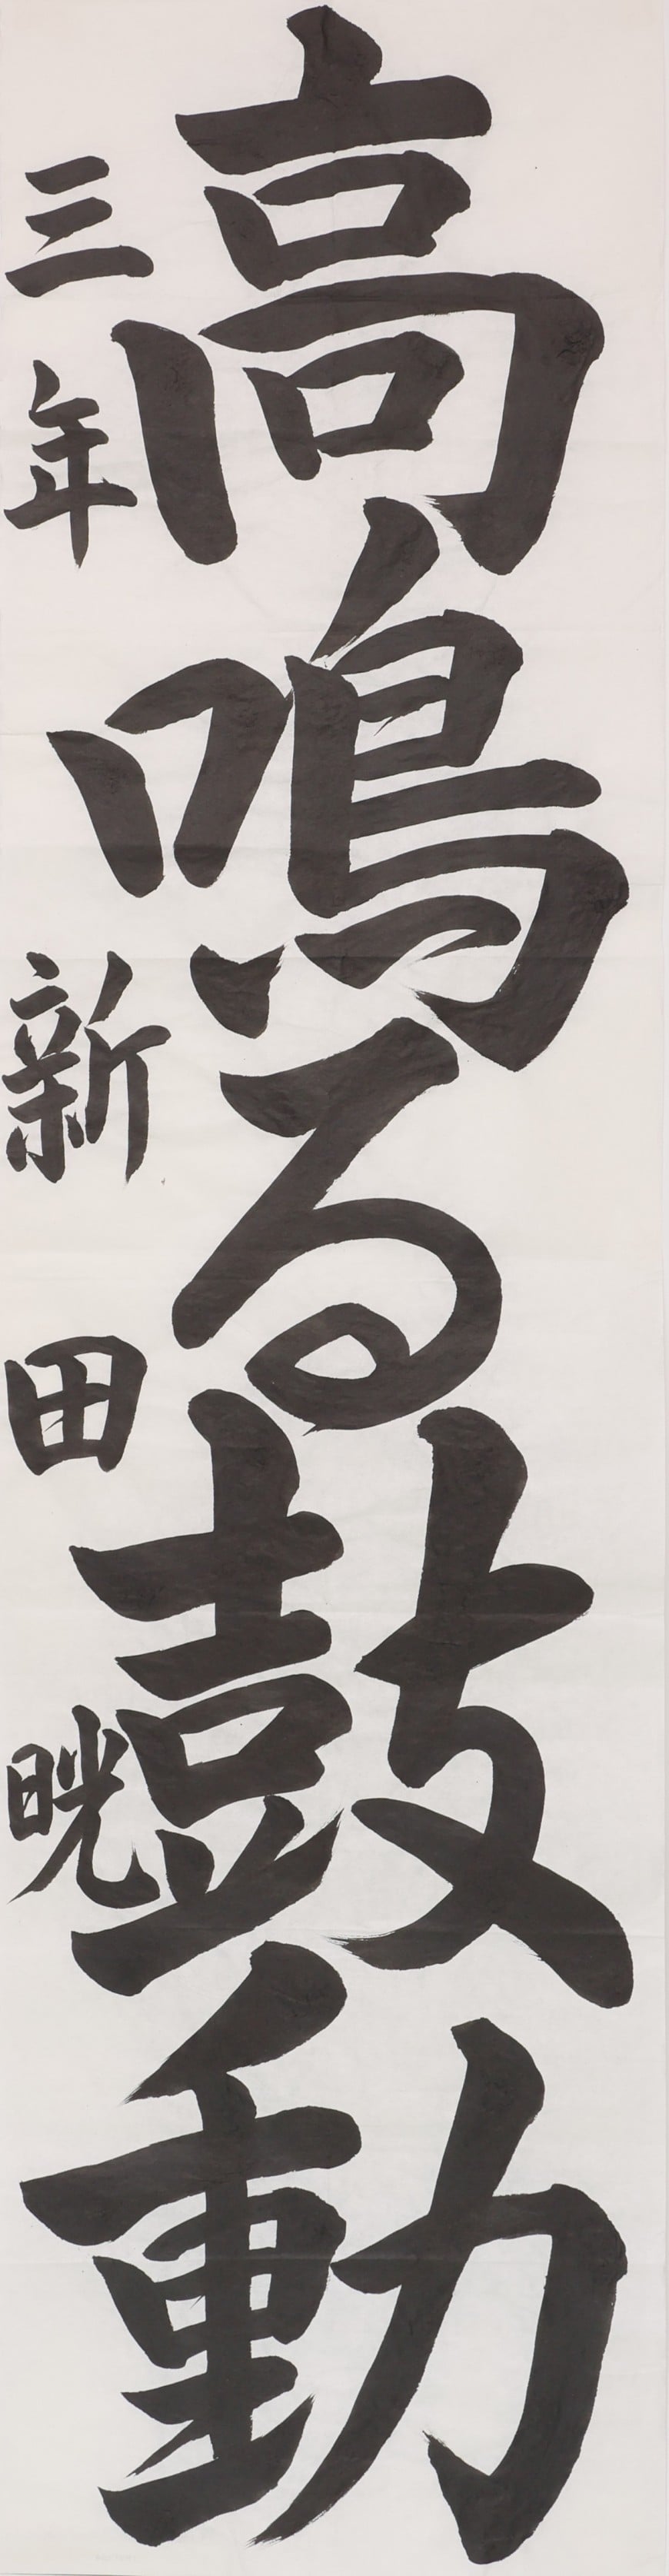 高鳴る鼓動
三年 新田 晄